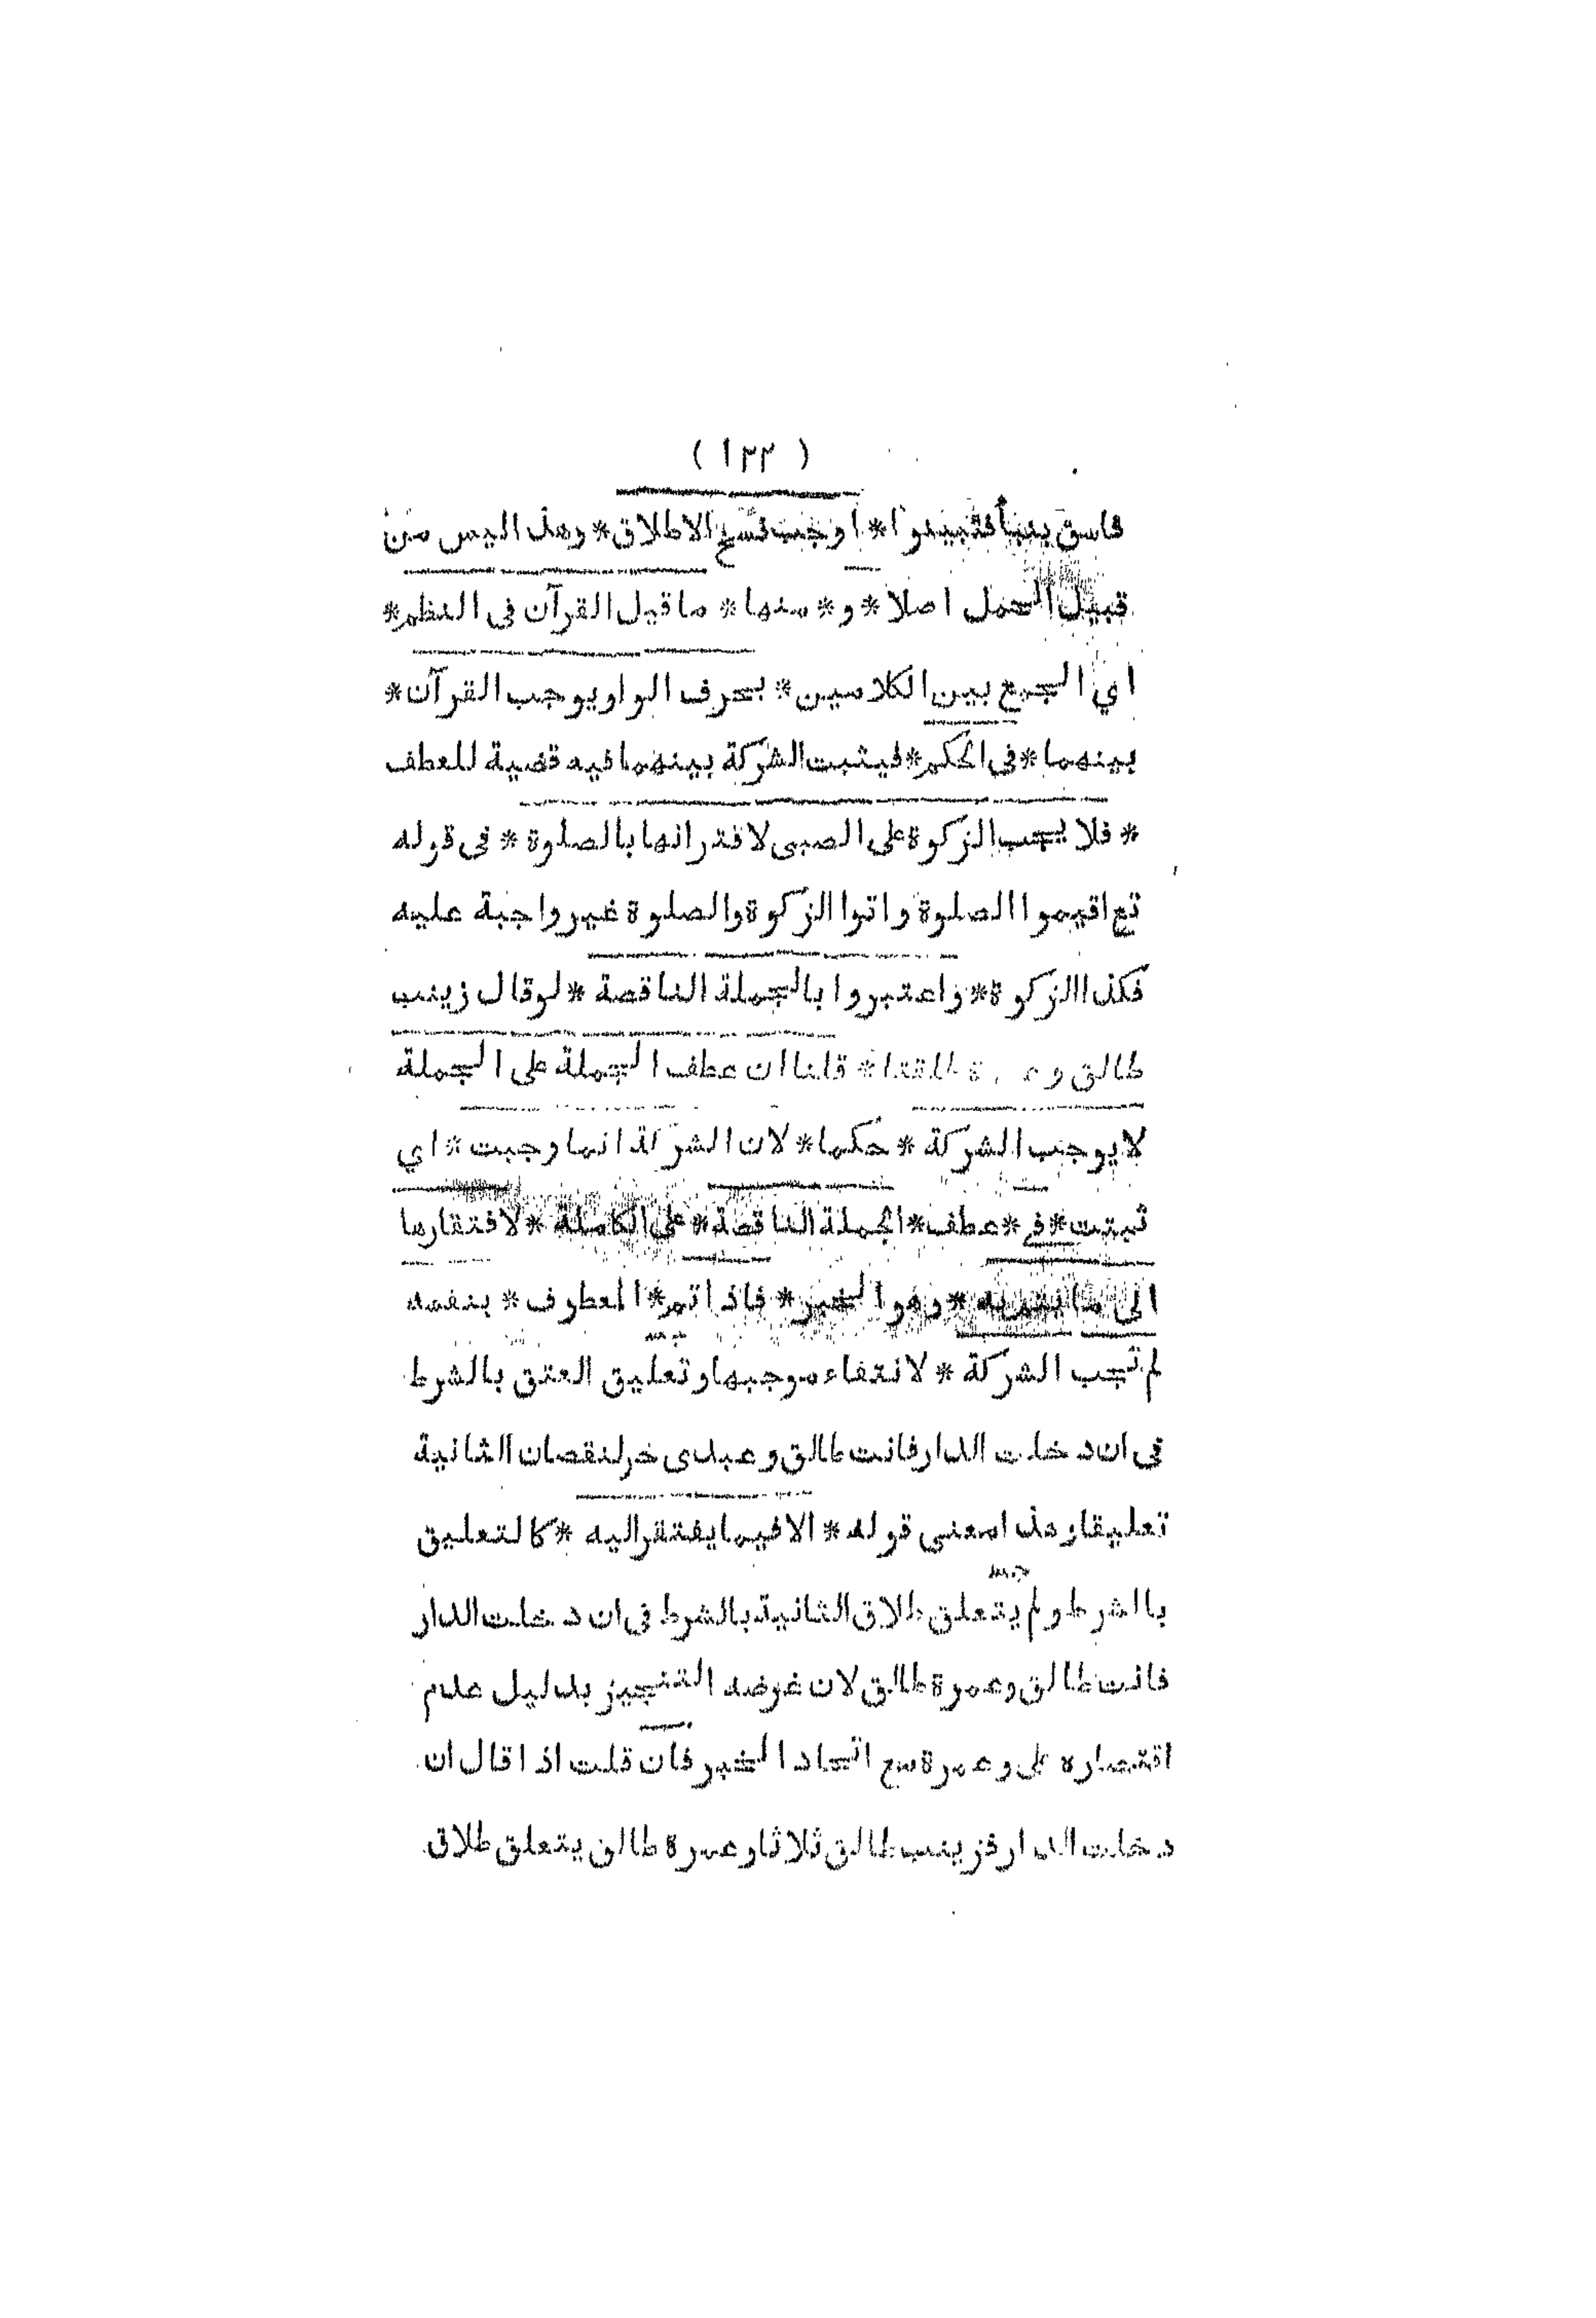 ( ١٢٢ )
فاسق بنبأ فتبينوا * اوجب نسخ الاطلاق * وهذا ليس من
قبيل الحمل اصلا * و * منها * ما قيل القرآن فى النظم *
اي الجمع بين الكلامين * بحرف الواو يوجب القرآن *
بينهما * فى الحكم * فيثبت الشركة بينهما فيه قضية للعطف
* فلا يجب الزكوة على الصبى لاقترانها بالصلوة * فى قوله
تع اقيموا الصلوة واتوا الزكوة والصلوة غير واجبة عليه
فكذا الزكوة * واعتبروا بالجملة الناقصة * لو قال زينب
طالق و طلقتا * قلنا ان عطف الجملة على الجملة
لا يوجب الشركة * حكما * لان الشركة انما وجبت * اي
ثبتت * فى * عطف * الجملة الناقصة * على الكاملة * لافتقارها
الى ما يتم به * وهو الخبر * فاذا تم * المعطوف * بنفسه
لم تجب الشركة * لانتفاء موجبها وتعليق العتق بالشرط
فى ان دخلت الدار فانت طالق وعبدى حر لنقصان الثانية
تعليقا وهذا معنى قوله * الا فيما يفتقر اليه * كالتعليق
بالشرط ولم يتعلق طلاق الثانية بالشرط فى ان دخلت الدار
فانت طالق وعمرة طالق لان غرضه التنجيز بدليل عدم
اقتصاره على وعمرة مع اتحاد الخبر فان قلت اذا قال ان
دخلت الدار فزينب طالق ثلاثا وعمرة طالق يتعلق طلاق